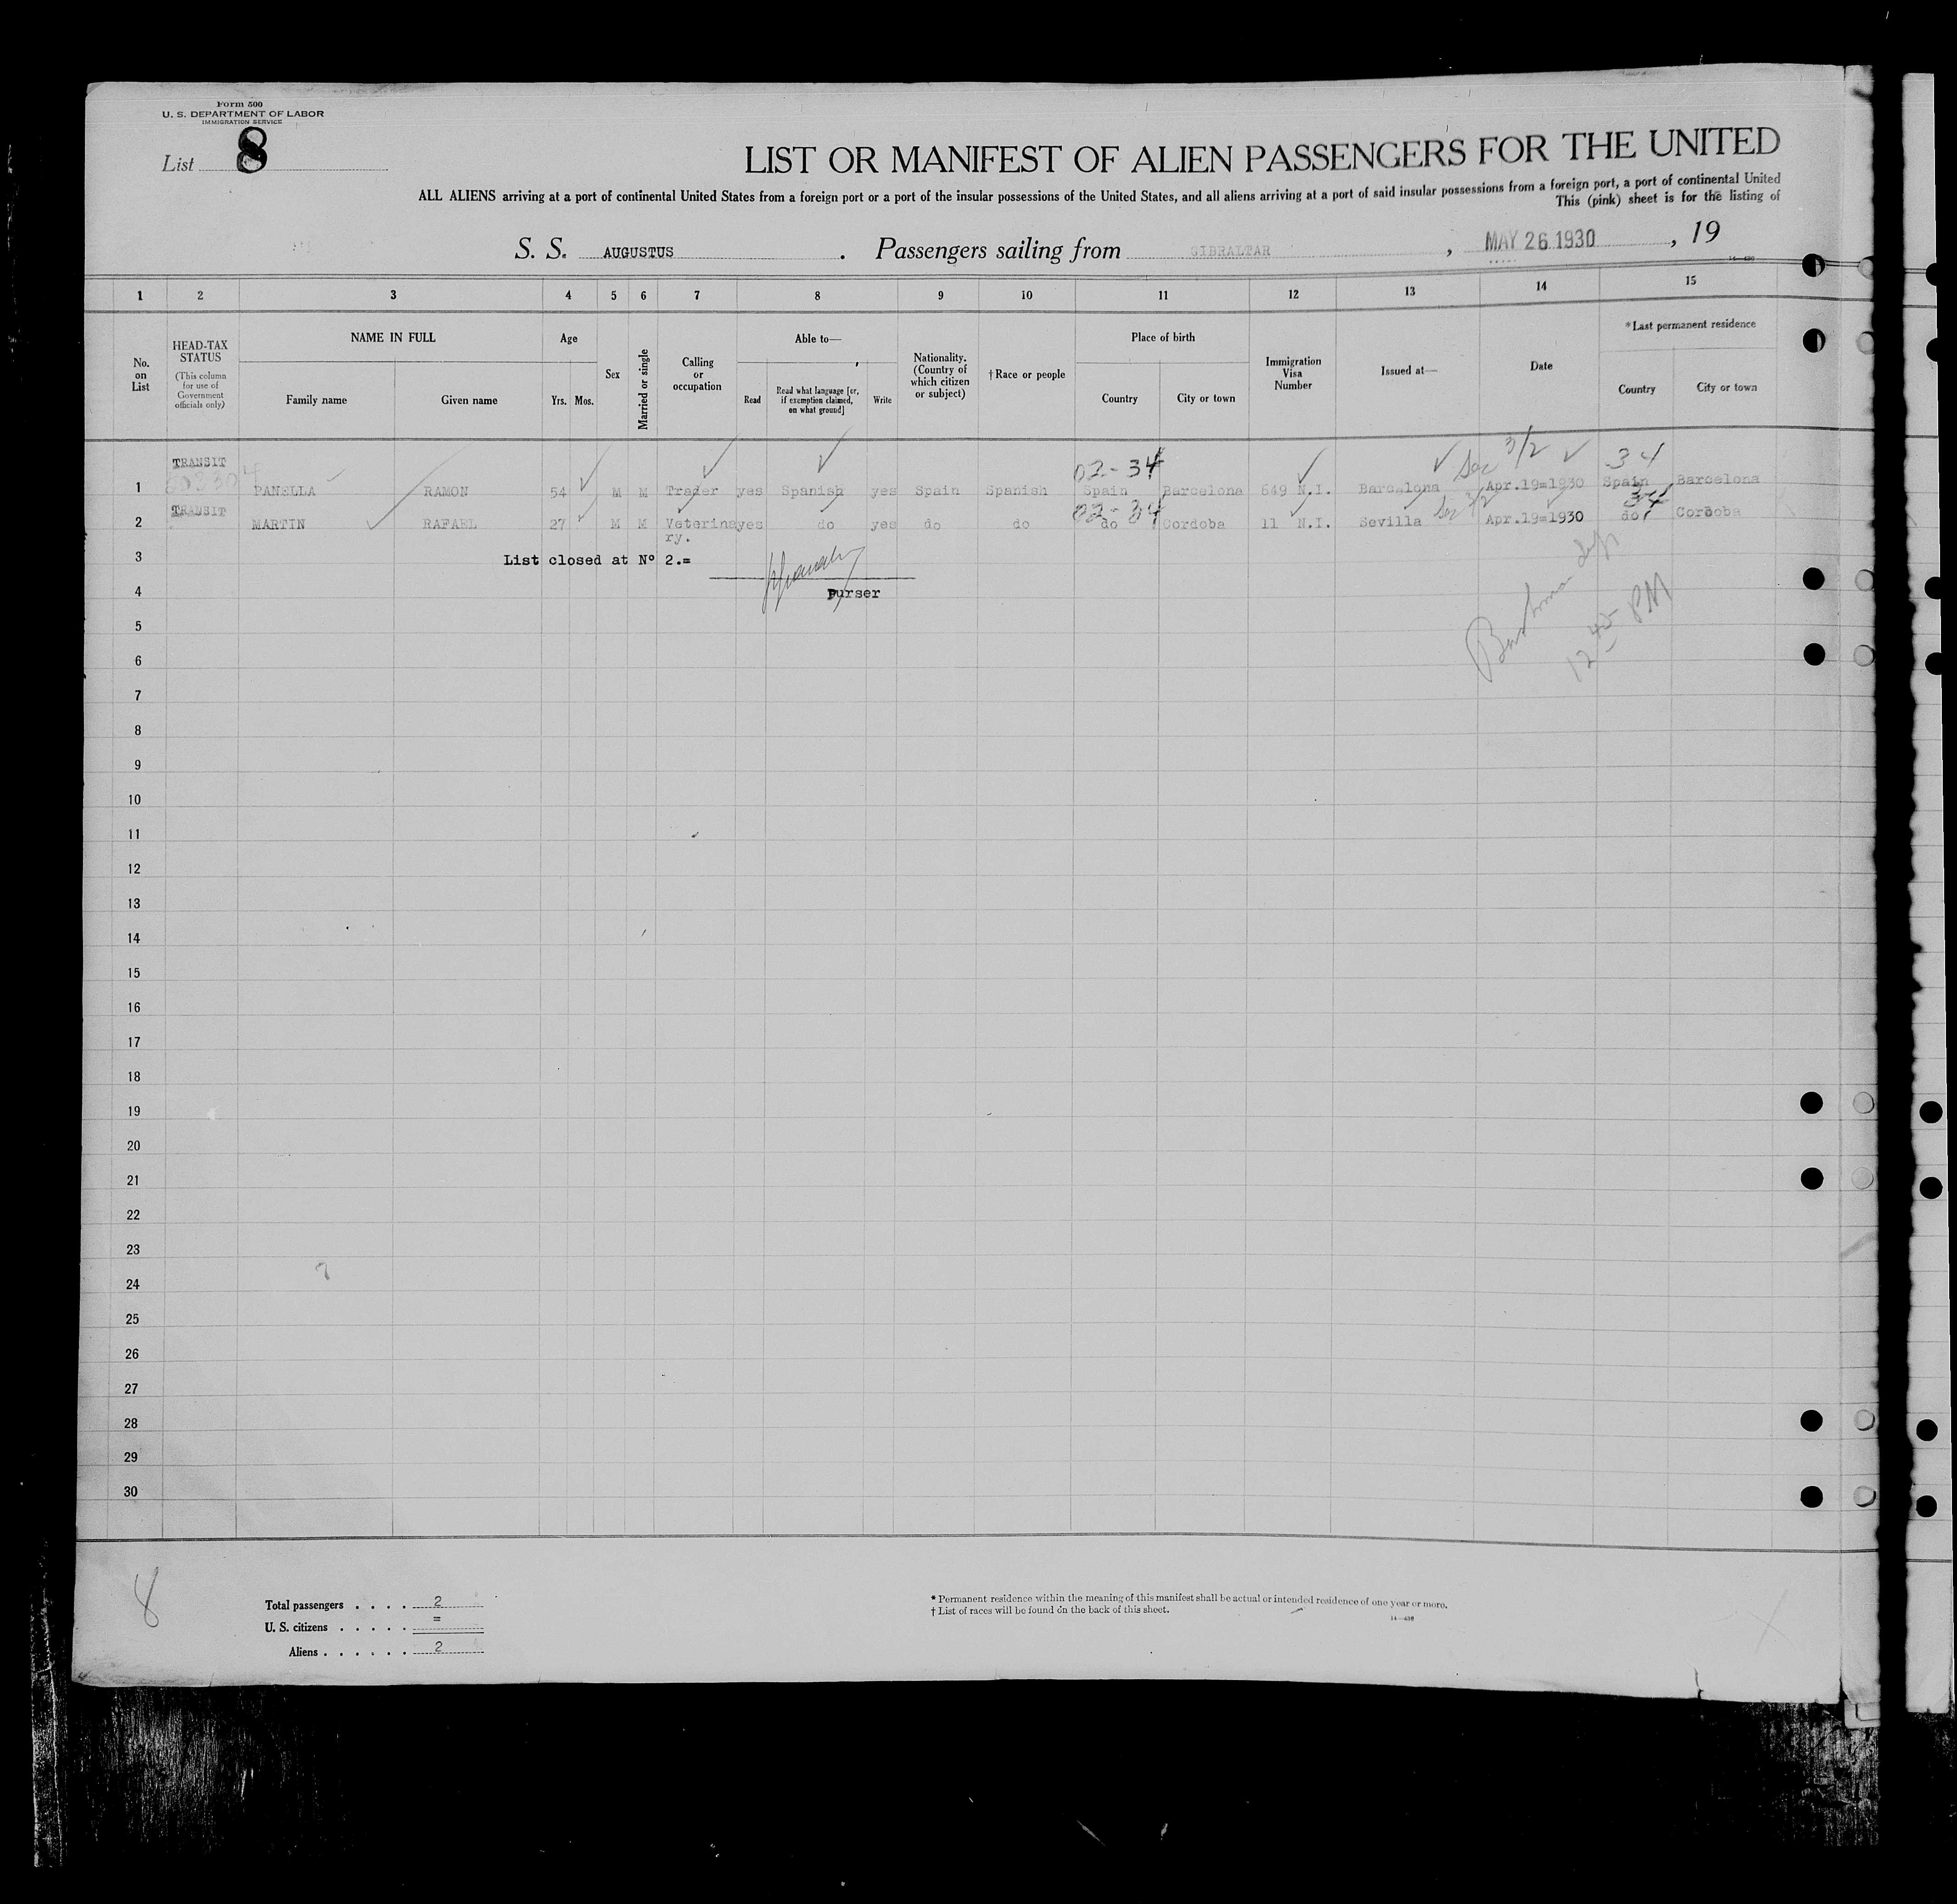 Form 500
U. S. DEPARTMENT OF LABOR
IMMIGRATION SERVICE
List 8
LIST OR MANIFEST OF ALIEN PASSENGERS FOR THE UNITED
ALL ALIENS arriving at a port of continental United States from a foreign port or a port of the insular possessions of the United States, and all aliens arriving at a port of said insular possessions from a foreign port, a port of continental United
This (pink) sheet is for the listing of
S. S. AUGUSTUS . Passengers sailing from GIBRALTAR , MAY 26 1930 , 19
14—430
1 2 3 4 5 6 7 8 9 10 11 12 13 14 15
No. on List
HEAD-TAX STATUS
(This column for use of Government officials only)
NAME IN FULL
Family name Given name
Age
Yrs. Mos.
Sex
Married or single
Calling or occupation
Able to—
Read
Read what language [or, if exemption claimed, on what ground]
Write
Nationality. (Country of which citizen or subject)
†Race or people
Place of birth
Country City or town
Immigration Visa Number
Issued at—
Date
*Last permanent residence
Country City or town
TRANSIT 02-34 Sec 3/2 34
1 PANELLA RAMON 54 M M Trader yes Spanish yes Spain Spanish Spain Barcelona 649 N.I. Barcelona Apr.19=1930 Spain Barcelona
TRANSIT 02-34 Sec 3/2 34
2 MARTIN RAFAEL 27 M M Veterina yes do yes do do do Cordoba 11 N.I. Sevilla Apr.19=1930 do Cordoba
ry.
3 List closed at Nº 2.=
4 Purser
5
6
12 45 PM
7
8
9
10
11
12
13
14
15
16
17
18
19
20
21
22
23
24
25
26
27
28
29
30
8
Total passengers . . . . 2
U. S. citizens . . . . . =
Aliens . . . . . . 2
* Permanent residence within the meaning of this manifest shall be actual or intended residence of one year or more.
† List of races will be found on the back of this sheet.
14—430